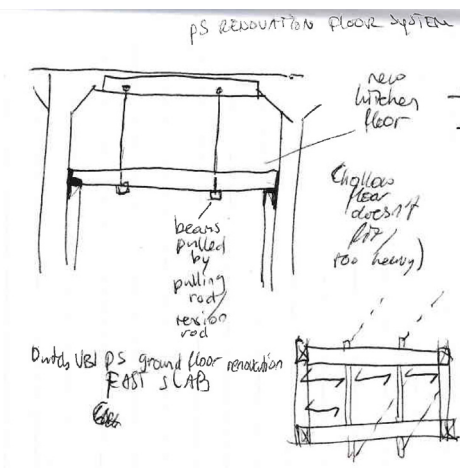 PS RENOVATION FLOOR SYSTEM
new
kitchen
floor
(hollow
floor
doesn't
fit/
too heavy)
beams
pulled
by
pulling
rod/
tension
rod
Dutch VBI PS ground floor renovation
EAST SLAB